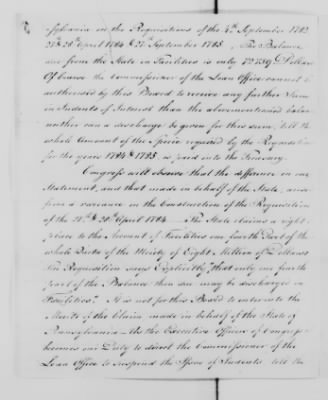 sylvania on the Requisitions of the 4th September 1782
27th & 28th April 1784 & 27th September 1785. The Balance
due from the State in Facilities is only Dollars
Of Course the Commissioner of the Loan Office cannot be
authorised by this Board to receive any further Sum
in Indents of Interest than the abovementioned balan
neither can a discharge be given for this sum, till the
whole amount of the Specie required by the Requisition
for the years 1784 & 1785, is paid into the Treasury.
Congress will observe that the difference in our
Statement, and that made in behalf of the State, arise
from a variance in the Construction of the Requisition
of the 27th & 28th April 1784. The State claims a right
place to the Account of Facilities one fourth Part of the
whole Quota of the Moiety of Eight Million of Dollars
The Requisition says Explicitly "that only one fourth
part of the Balance then due may be discharged in
Facilities". It is not for this Board to enter into the
Merits of the Claim made in behalf of the State of
Pennsylvania. As the Executive Officers of Congress
becomes our Duty to direct the Commissioner of the
Loan Office to suspend the Issue of Indents till the